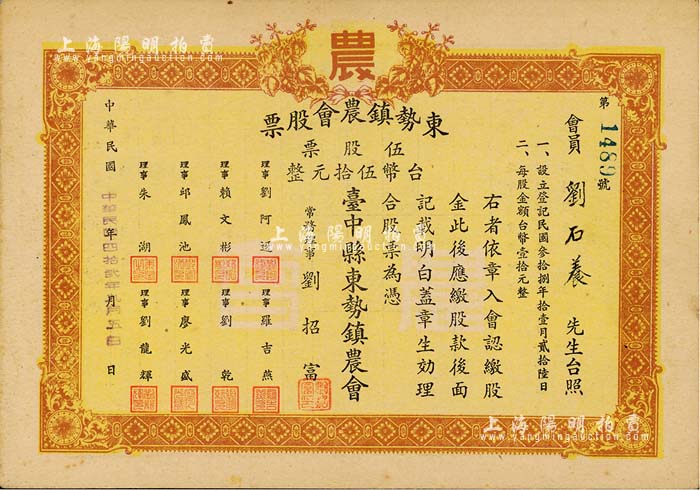 農
東勢鎮農會股票
第1489號
會員 劉石養 先生台照
一、設立登記民國參拾捌年拾壹月貳拾陸日
二、每股金額台幣壹拾元整
伍股票
台幣伍拾元整
右者依章入會認繳股
金此後應繳股款後面
記載明白蓋章生効理
合股票為憑
臺中縣東勢鎮農會
常務理事 劉招富
理事 劉阿
理事 羅吉燕
理事 賴文彬
理事 劉乾
理事 邱鳳池
理事 廖光盛
理事 朱湖
理事 劉龍輝
中華民國 年 月 日
中華民國四拾貳年 月五日
上海陽明拍賣
www.yangmingauction.com
上海陽明拍賣
www.yangmingauction.com
上海陽明拍賣
www.yangmingauction.com
上海陽明拍賣
www.yangmingauction.com